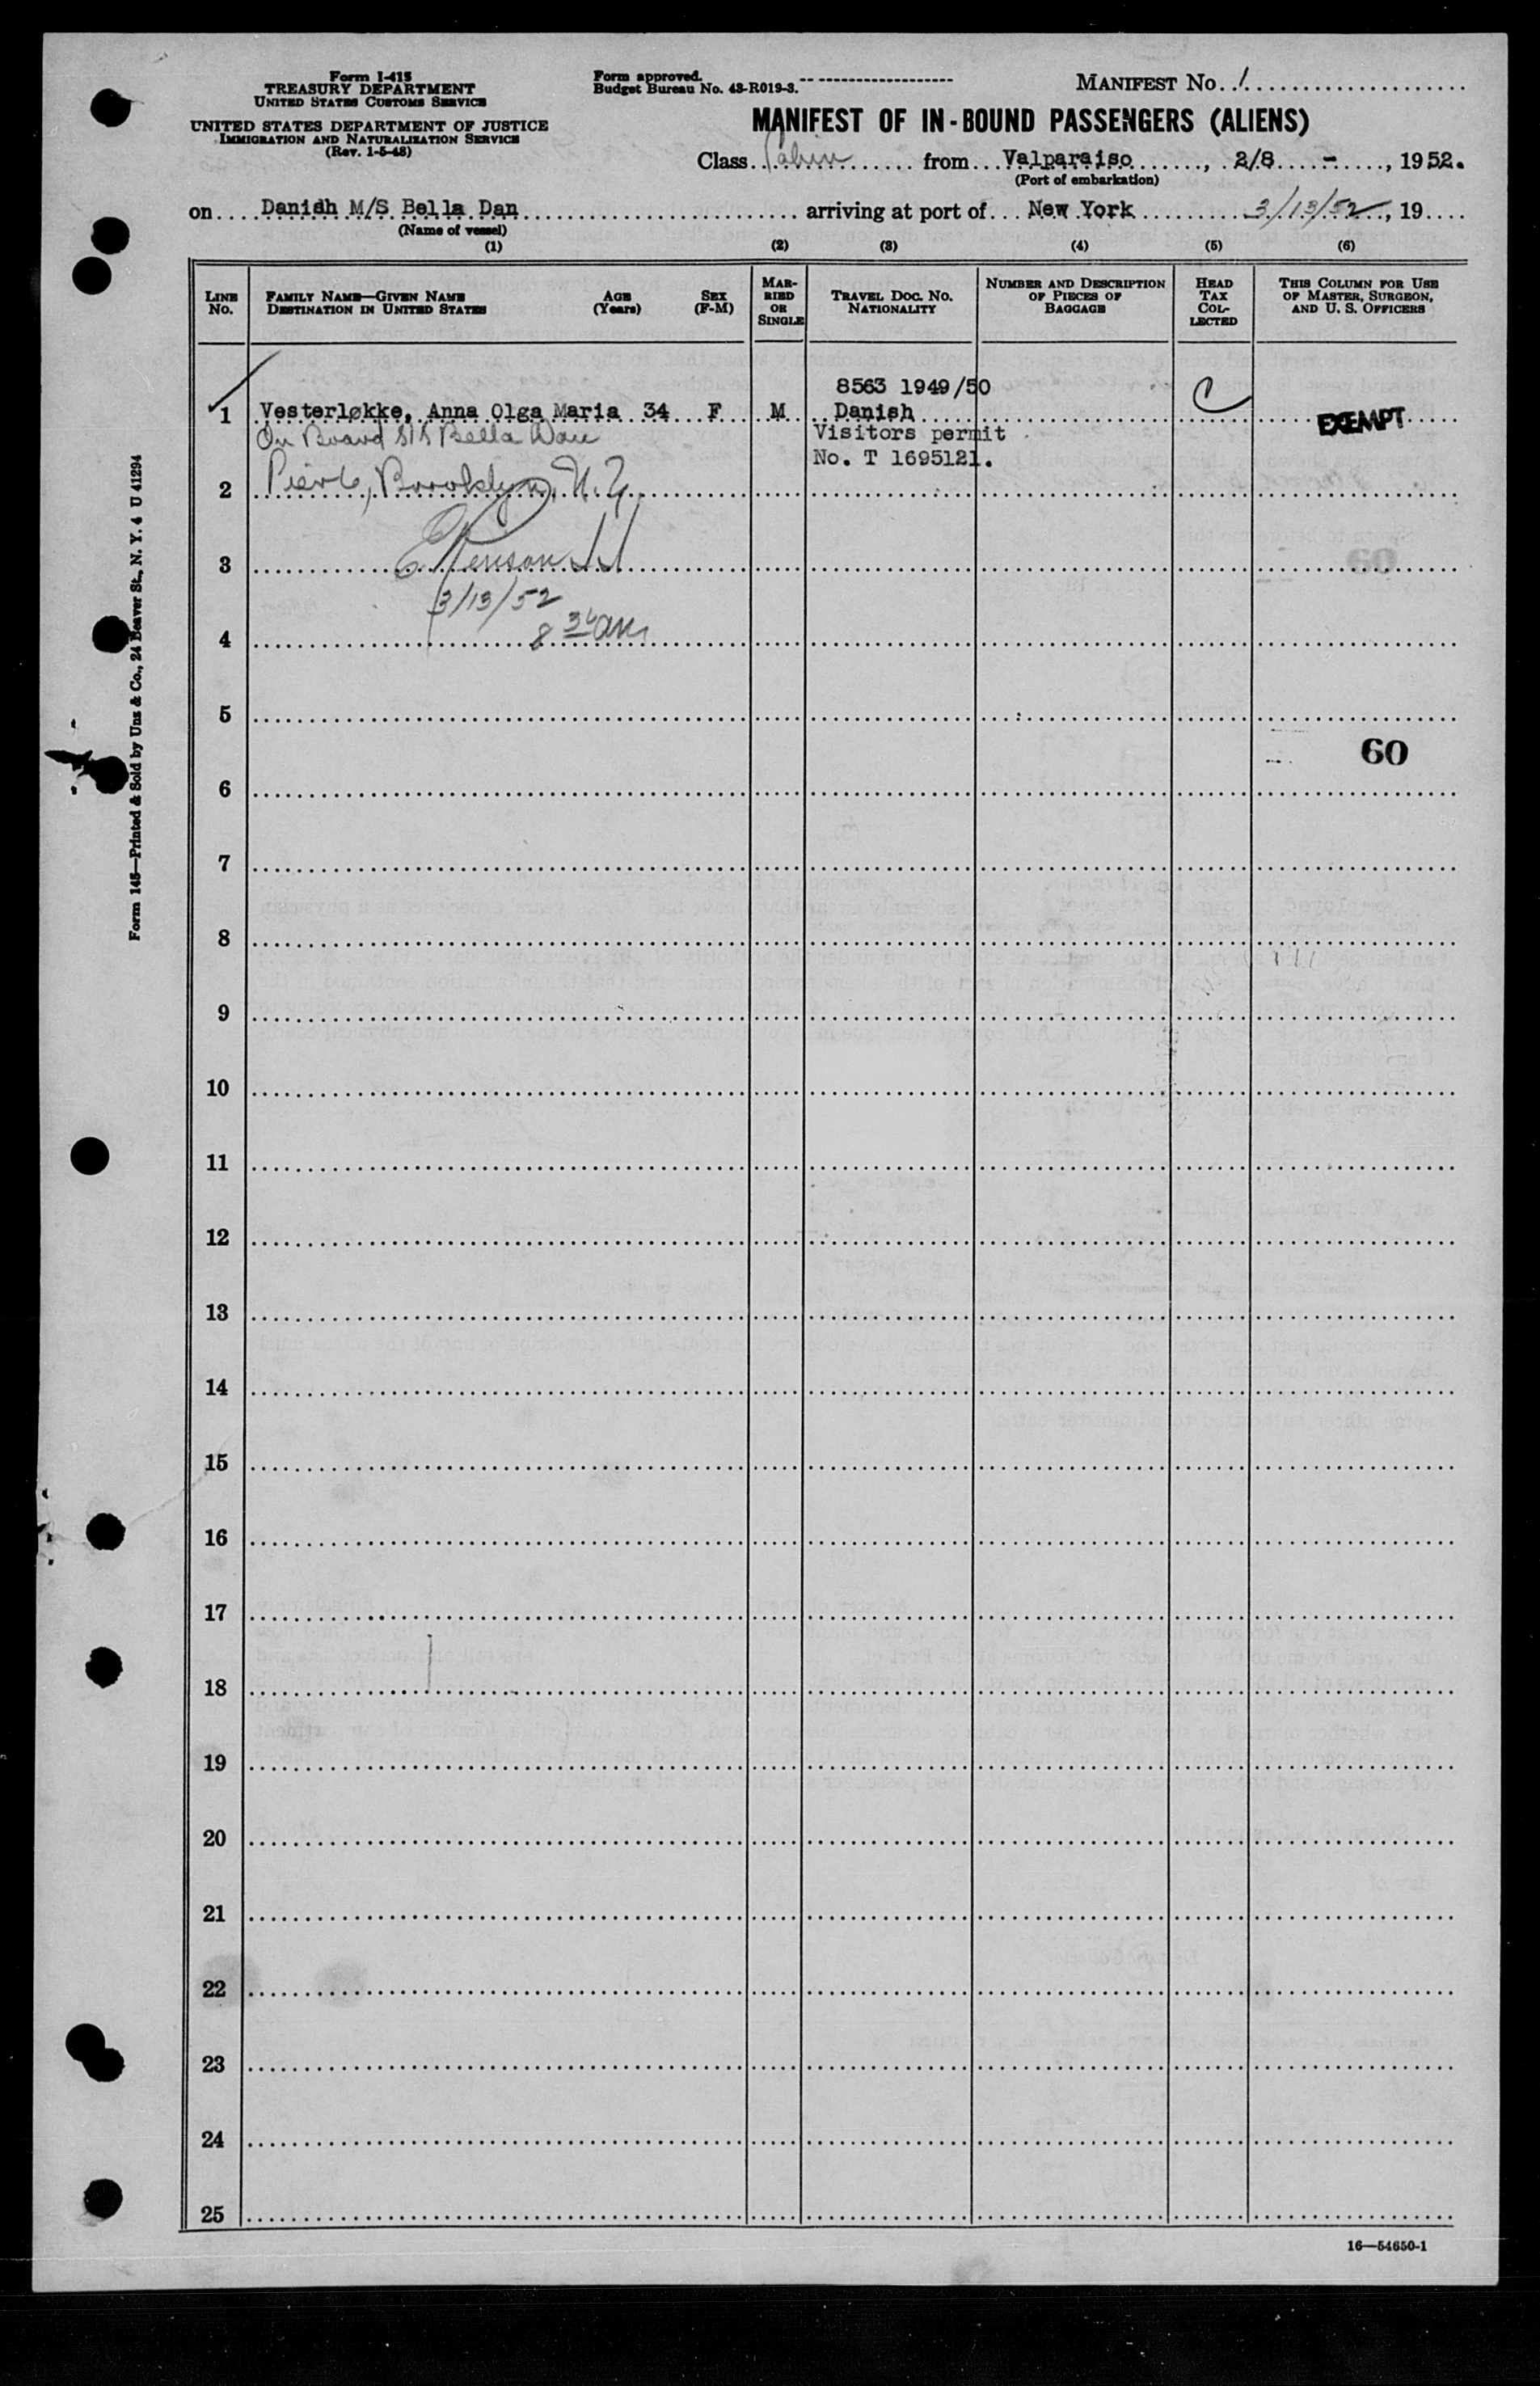 Form I-415
TREASURY DEPARTMENT
UNITED STATES CUSTOMS SERVICE
UNITED STATES DEPARTMENT OF JUSTICE
IMMIGRATION AND NATURALIZATION SERVICE
(Rev. 1-5-48)
Form approved.
Budget Bureau No. 43-R019-3.
MANIFEST No. 1
MANIFEST OF IN-BOUND PASSENGERS (ALIENS)
Class Cabin from Valparaiso, 2/8 -, 1952.
(Port of embarkation)
on Danidh M/S Bella Dan arriving at port of New York 3/13/52, 19
(Name of vessel)
(1) (2) (3) (4) (5) (6)
LINE No.
FAMILY NAME—GIVEN NAME
DESTINATION IN UNITED STATES
AGE (Years)
SEX (F-M)
MARRIED OR SINGLE
TRAVEL DOC. NO.
NATIONALITY
NUMBER AND DESCRIPTION OF PIECES OF BAGGAGE
HEAD TAX COLLECTED
THIS COLUMN FOR USE OF MASTER, SURGEON, AND U. S. OFFICERS
8563 1949/50
1 Vesterløkke, Anna Olga Maria 34 F M Danish EXEMPT
On Board S/S Bella Dan
Visitors permit
No. T 1695121.
2 Pier 6, Brooklyn, N.Y.
3
3/13/52
4 8 30 am
5
60
6
7
8
9
10
11
12
13
14
15
16
17
18
19
20
21
22
23
24
25
16—54650-1
Form 145—Printed & Sold by Unz & Co., 24 Beaver St., N. Y. 4 U 41294